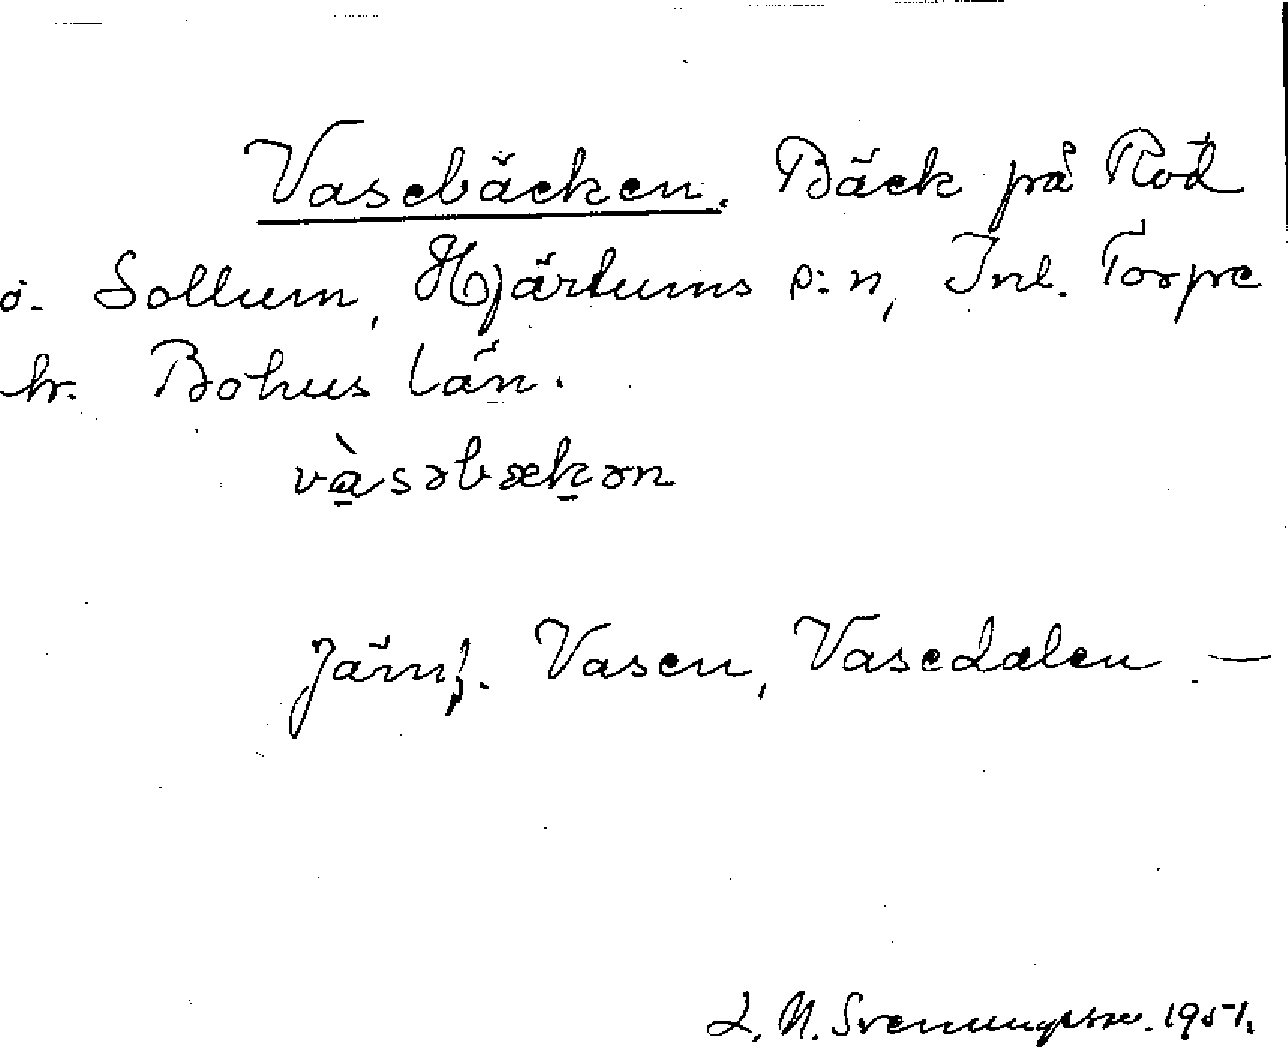 Vasebäcken. Bäck på Röd
ö. Sollum, Hjärtums s:n, Inl. Torpe
hr. Bohus län.
vàsəbækən
Jämf. Vasen, Vasedalen —
L. M. Svenungsson. 1951.